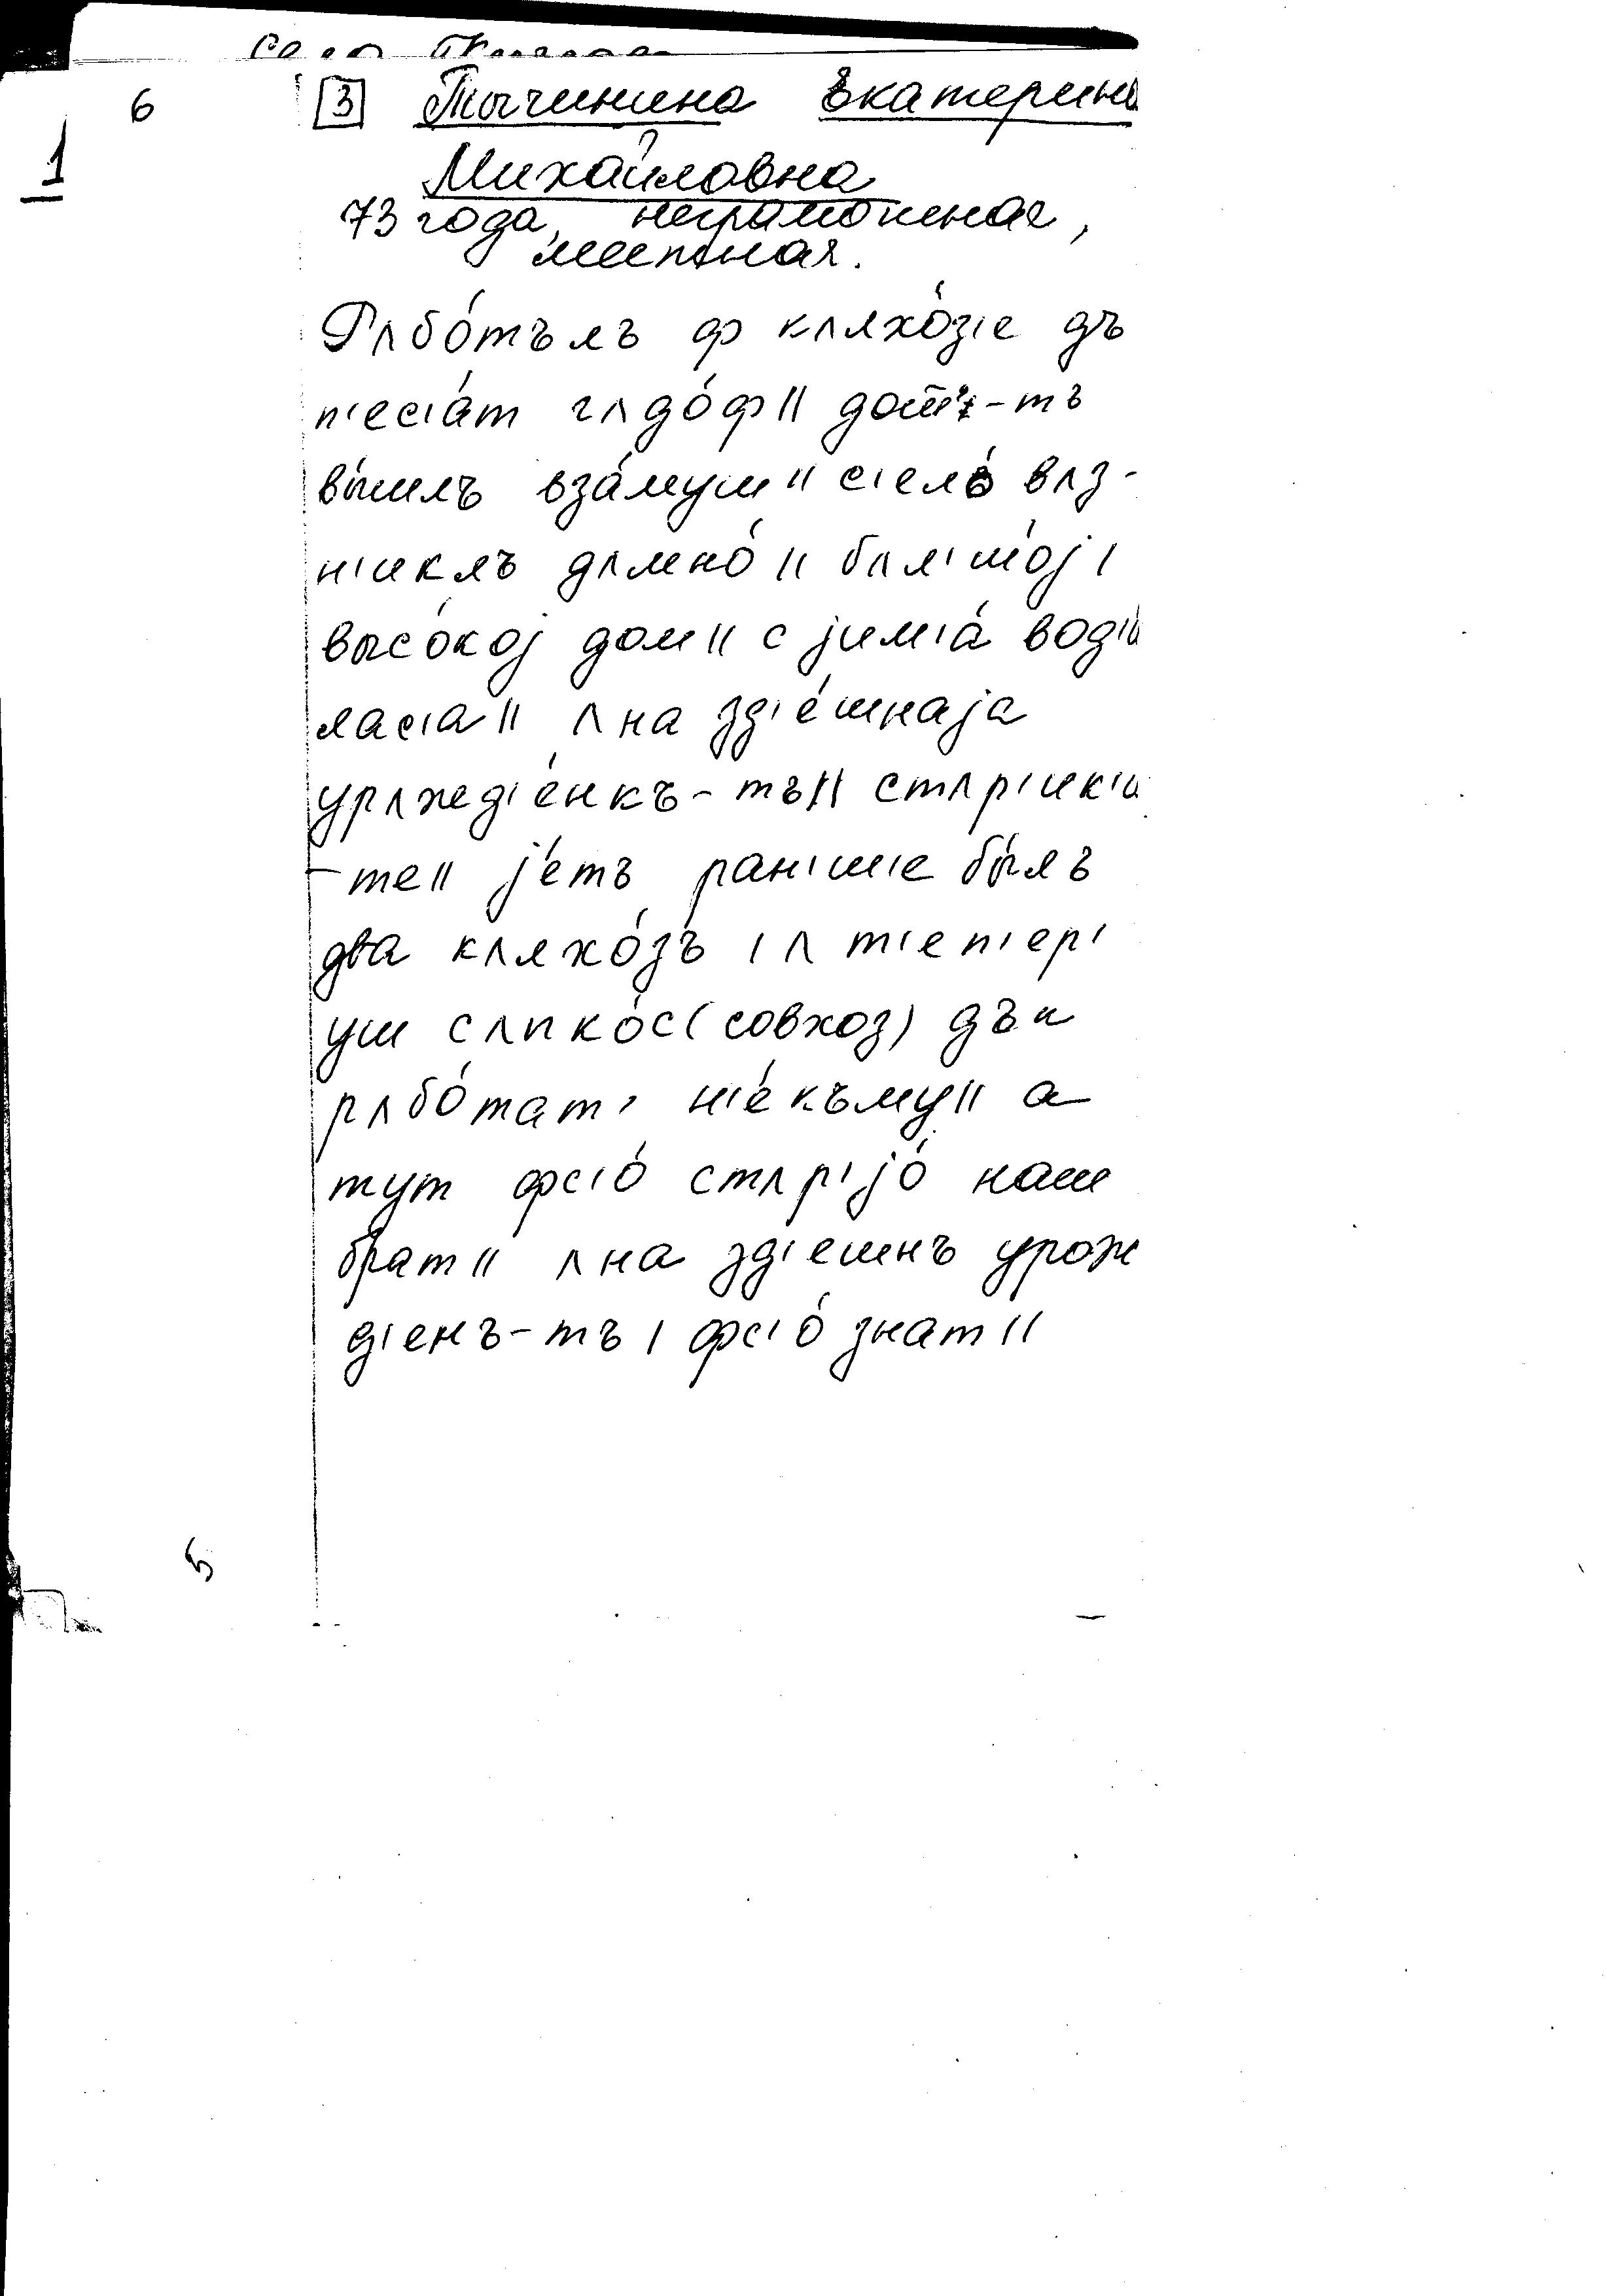 6
1
[3] Тычинина Екатерина
Михайловна
73 года, неграмотная,
местная.
Рʌбо́тълъ ф кʌлхо́з'е дъ
п'ес'а́т гʌдо́ф॥ -тъ
вы́шлъ вза́муш॥ с'ело́ вʌз-
н'иклъ дʌмно́॥ бʌл'шо́j ׀
высо́коj дом॥ с jим'а́ вод'и́
лас'а॥ ʌна зд'е́шнаjа
урʌжд'е́нкъ-тъ॥ стʌр'ик'и
-те॥ jе́тъ ран'ш'е бы́лъ
два кʌлхо́зъ ׀ ʌ т'еп'ер'
уш сʌпко́с (совхоз) дъ и
рʌбо́тат' н'е́къму॥ а
тут фс'о́ стʌр'jо́ наш
брат॥ ʌна зд'ешнъ урож
д'енъ-тъ ׀ фс'о́ знат॥
5